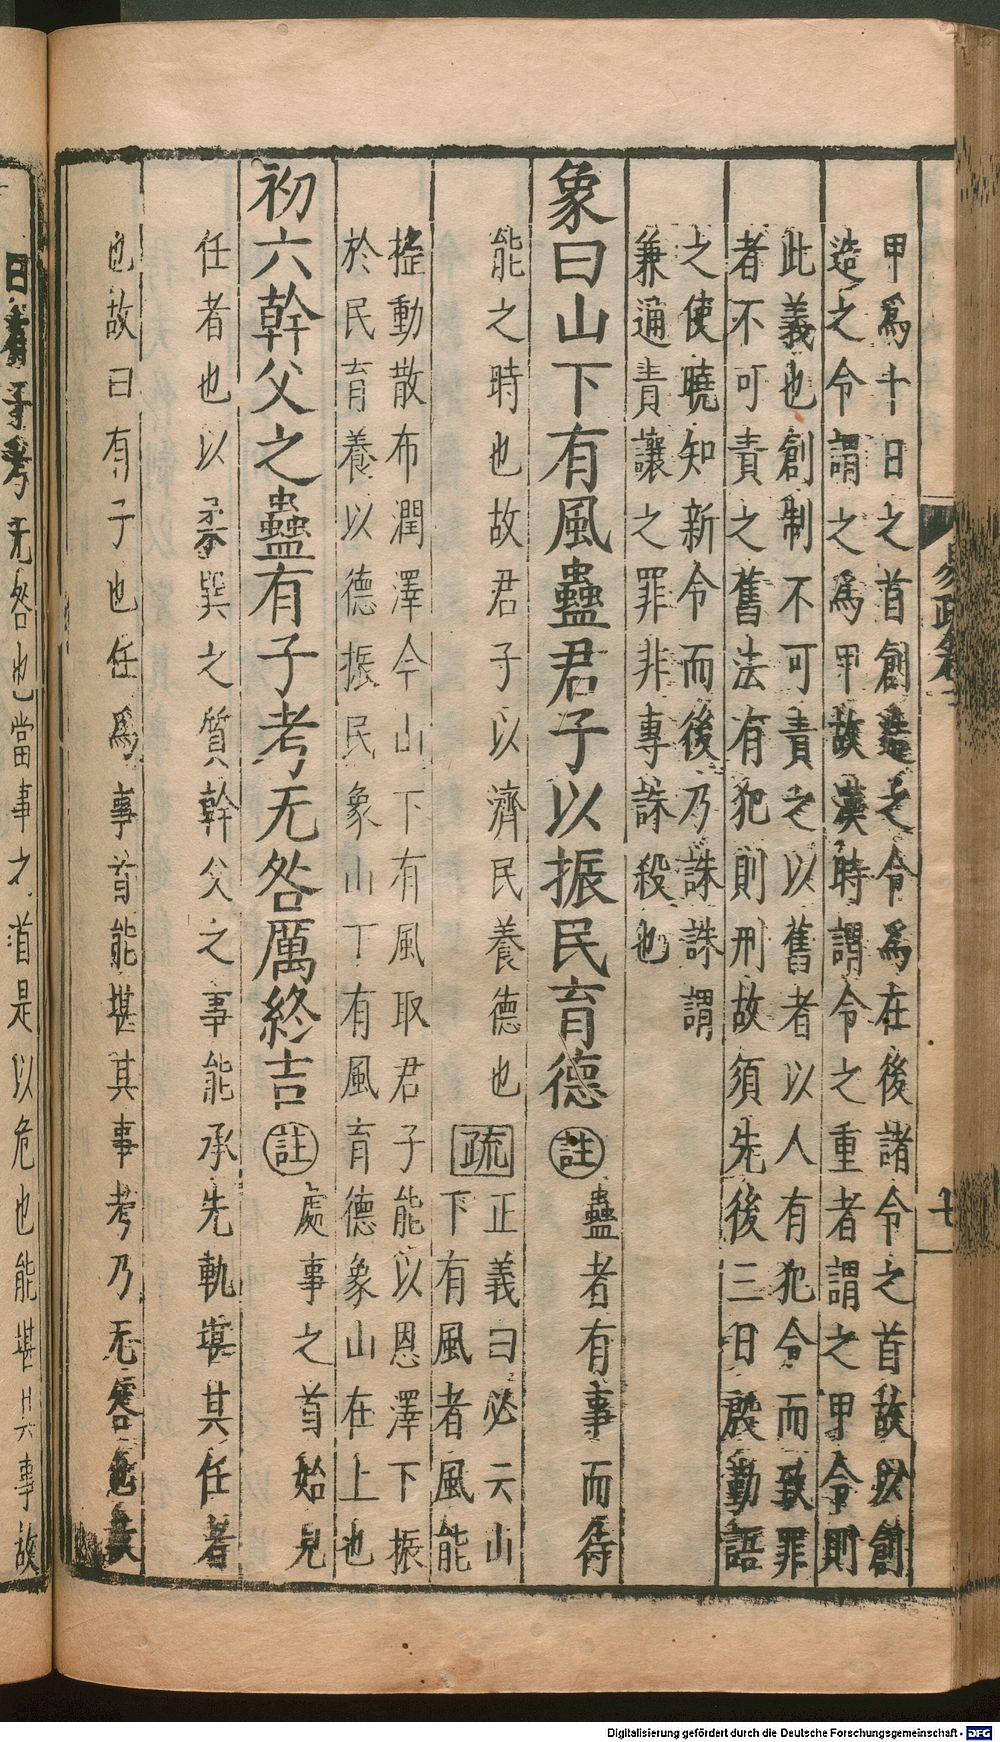 甲爲十日之首創造之令爲在後諸令之首故以創
造之令謂之爲甲故漢時謂令之重者謂之甲令則
此義也創制不可責之以舊者以人有犯令而致罪
者不可責之舊法有犯則刑故須先後三日殷勤語
之使曉知新令而後乃誅誅謂
兼通責讓之罪非專誅殺也
象曰山下有風蠱君子以振民育德註蠱者有事而待
能之時也故君子以濟民養德也疏正義曰必云山
下有風者風能
搖動散布潤澤今山下有風取君子能以恩澤下振
於民育養以德振民象山下有風育德象山在上也
初六幹父之蠱有子考无咎厲終吉註處事之首始見
任者也以柔巽之質幹父之事能承先軌堪其任者
也故曰有子也任爲事首能堪其事考乃无咎也故
曰有子考无咎也當事之道是以危也能堪其事故
七
Digitalisierung gefördert durch die Deutsche Forschungsgemeinschaft - DFG